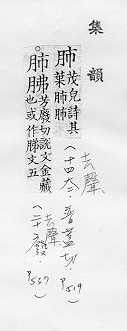 集韻
肺 茂皃詩其
葉肺肺
去聲
(十四太·普蓋切·P519)
。肺胇 芳廢切說文金藏
也或作胇文五
去聲
(二十廢·P537)